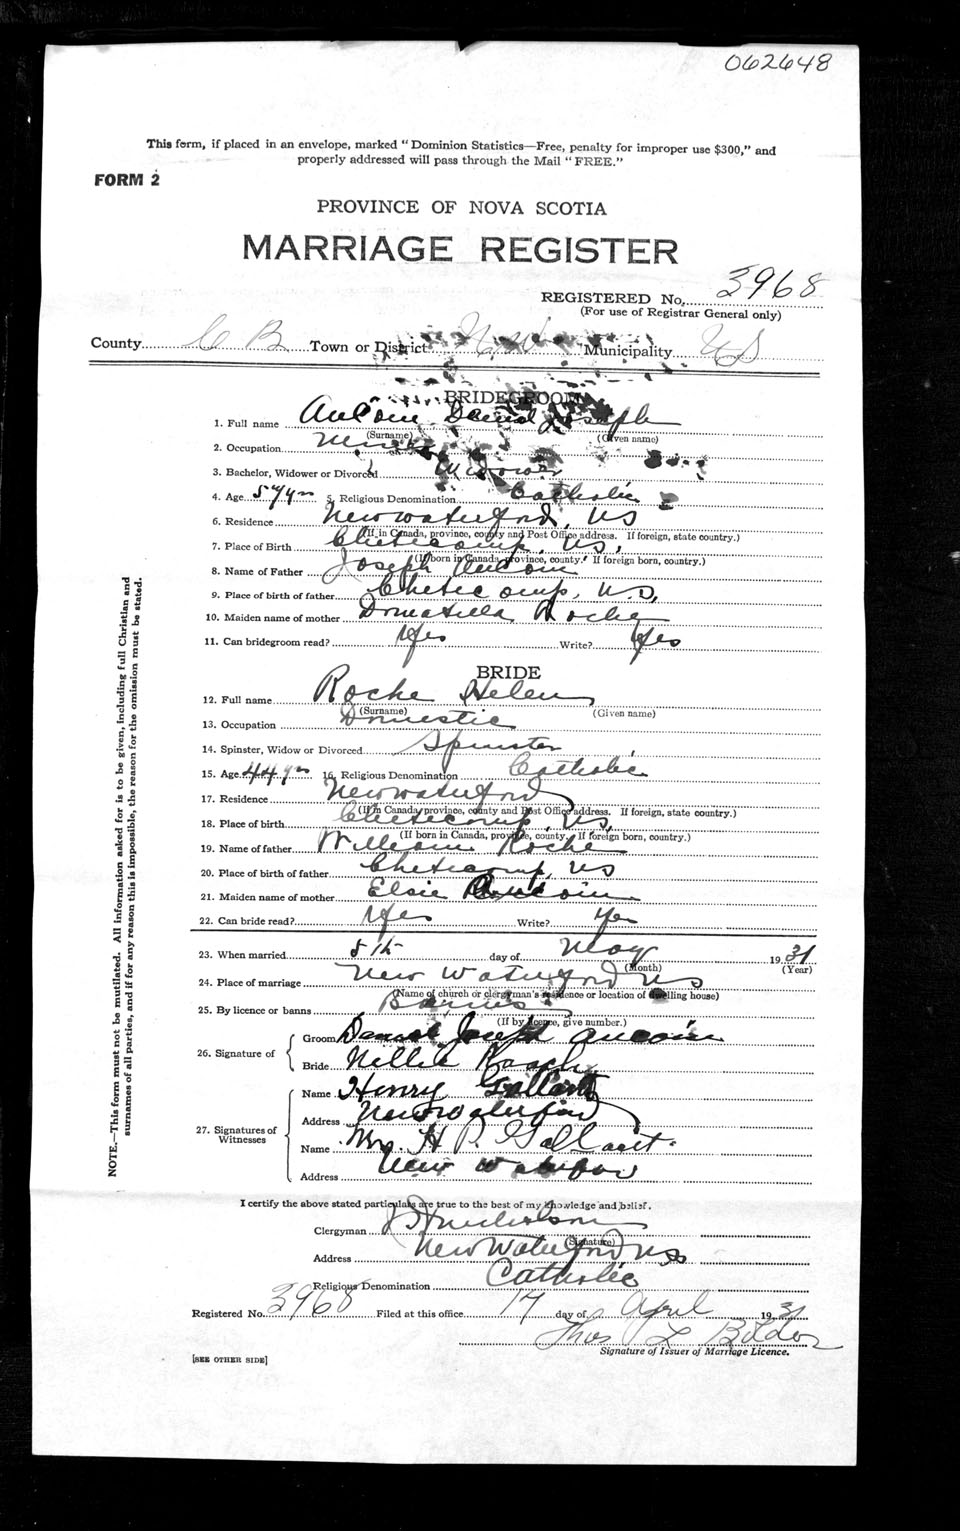 062648
This form, if placed in an envelope, marked "Dominion Statistics—Free, penalty for improper use $300," and
properly addressed will pass through the Mail "FREE."
FORM 2
PROVINCE OF NOVA SCOTIA
MARRIAGE REGISTER
REGISTERED No. 3968
(For use of Registrar General only)
County C B Town or District N. W Municipality NS
BRIDEGROOM
1. Full name Aucoin Daniel Joseph
(Surname) (Given name)
2. Occupation Miner
3. Bachelor, Widower or Divorced Widower
4. Age 57 yrs 5. Religious Denomination Catholic
6. Residence New Waterford, NS
(If in Canada, province, county and Post Office address. If foreign, state country.)
7. Place of Birth Cheticamp, NS,
(If born in Canada, province, county. If foreign born, country.)
8. Name of Father Joseph Aucoin
9. Place of birth of father Cheticamp, N.S.
10. Maiden name of mother Domatilda Roche
11. Can bridegroom read? Yes Write? Yes
BRIDE
12. Full name Roche Helen
(Surname) (Given name)
13. Occupation Domestic
14. Spinster, Widow or Divorced Spinster
15. Age 44 yrs 16. Religious Denomination Catholic
17. Residence New Waterford
(If in Canada, province, county and Post Office address. If foreign, state country.)
18. Place of birth Cheticamp, NS,
(If born in Canada, province, county. If foreign born, country.)
19. Name of father William Roche
20. Place of birth of father Cheticamp, NS
21. Maiden name of mother Elsie Aucoin
22. Can bride read? Yes Write? Yes
23. When married 5th day of May 1931
(Month) (Year)
24. Place of marriage New Waterford NS
(Name of church or clergyman's residence or location of dwelling house)
25. By licence or banns Banns
(If by licence, give number.)
26. Signature of
Groom Daniel Joseph Aucoin
Bride Nellie Roach
27. Signatures of Witnesses
Name Henry Gallant
Address New Waterford
Name Mrs. H P. Gallant
Address New Waterford
I certify the above stated particulars are true to the best of my knowledge and belief.
Clergyman J H Nicholson
(Signature)
Address New Waterford NS
Religious Denomination Catholic
Registered No. 3968 Filed at this office 17 day of April 1931
Thos L
Signature of Issuer of Marriage Licence.
[SEE OTHER SIDE]
NOTE.—This form must not be mutilated. All information asked for is to be given, including full Christian and
surnames of all parties, and if for any reason this is impossible, the reason for the omission must be stated.